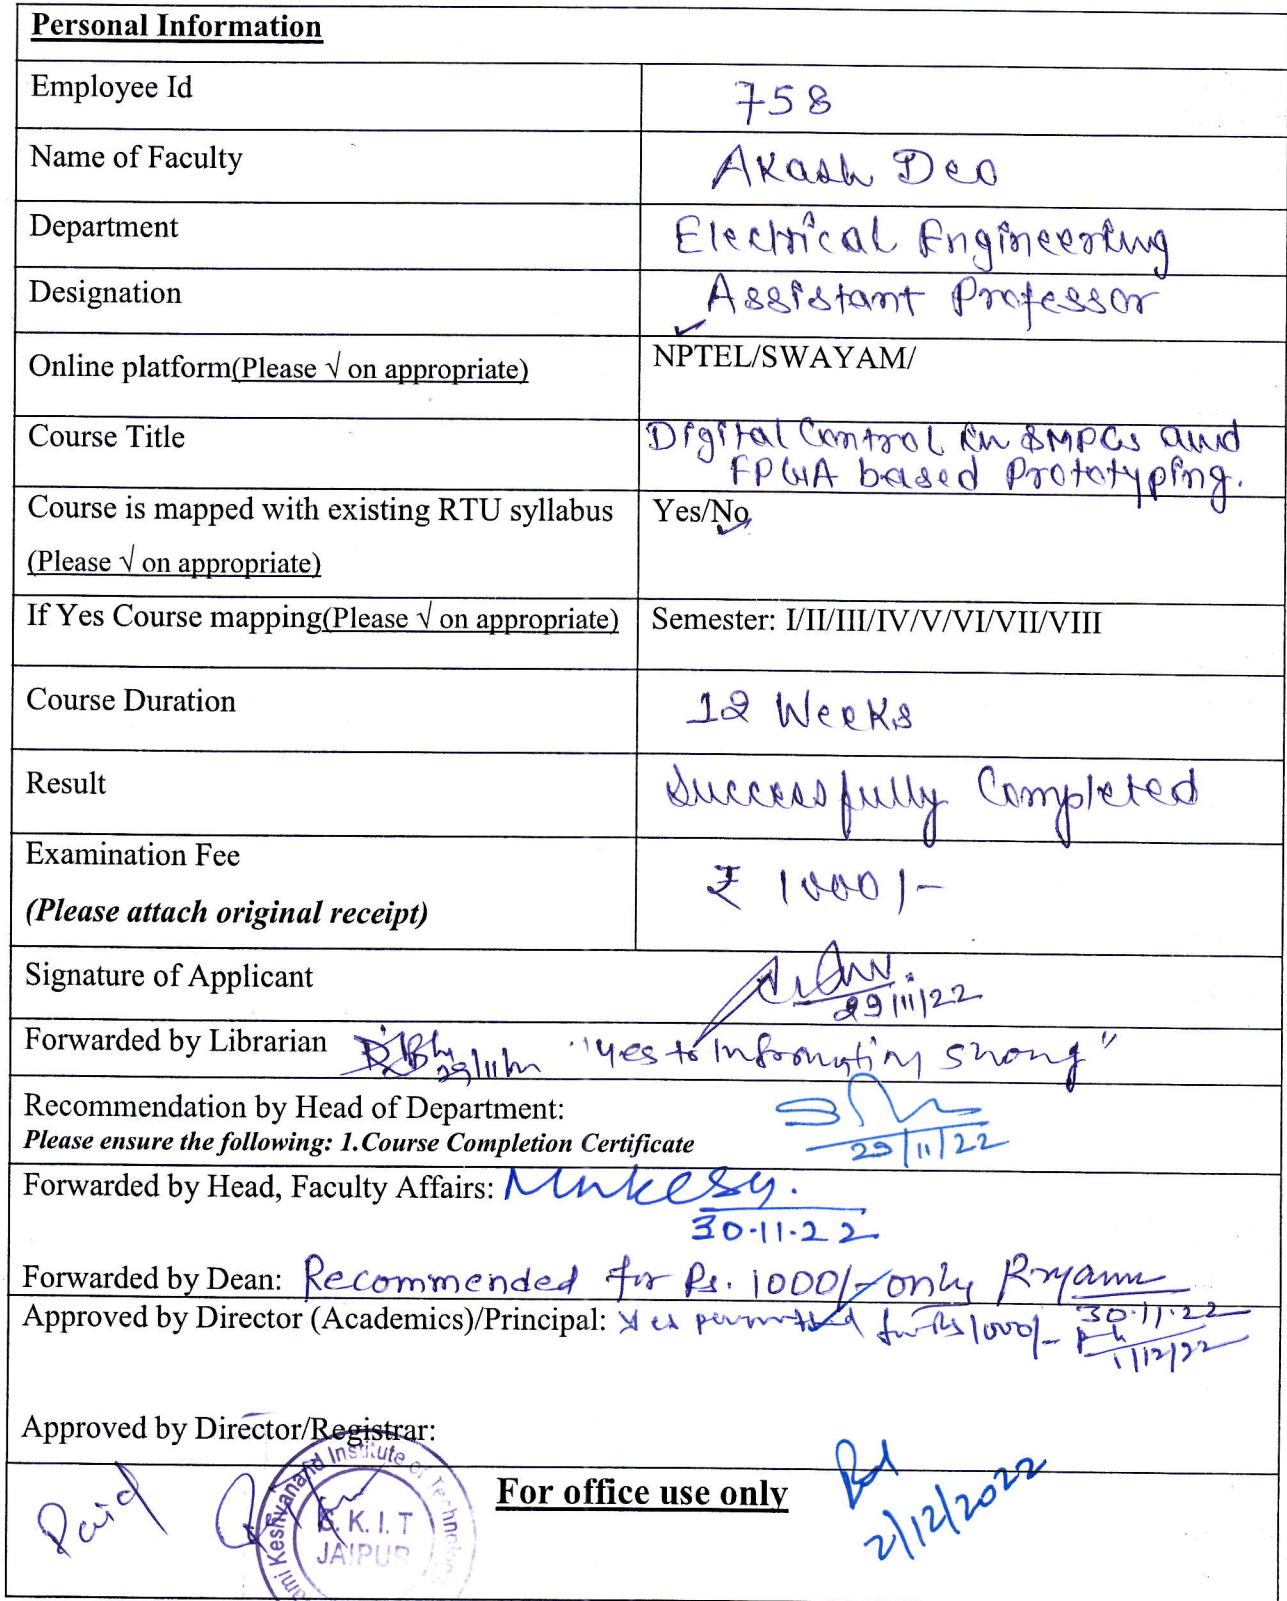 Personal Information
Employee Id 758
Name of Faculty Akash Deo
Department Electrical Engineering
Designation Assistant Professor
Online platform(Please √ on appropriate) ✓ NPTEL/SWAYAM/
Course Title Digital Control in SMPCs and
FPGA based Prototyping.
Course is mapped with existing RTU syllabus Yes/No ✓
(Please √ on appropriate)
If Yes Course mapping(Please √ on appropriate) Semester: I/II/III/IV/V/VI/VII/VIII
Course Duration 12 Weeks
Result Successfully Completed
Examination Fee ₹ 1000/-
(Please attach original receipt)
Signature of Applicant
29/11/22
Forwarded by Librarian "Yes to Information
Recommendation by Head of Department:
Please ensure the following: 1.Course Completion Certificate
29/11/22
Forwarded by Head, Faculty Affairs: Mukesh.
30.11.22
Forwarded by Dean: Recommended for Rs. 1000/- only
30.11.22
Approved by Director (Academics)/Principal: Yes permitted for Rs 1000/-
1/12/22
Approved by Director/Registrar:
For office use only
Paid
Keshvanand Institute of Technology
S.K.I.T
JAIPUR
2/12/2022